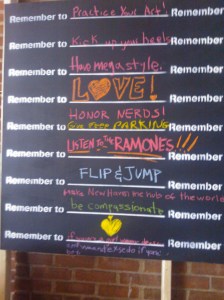 Remember to Practice Your Act! Remember
Remember to Kick up your heels Remember
Remember to Have mega style. Remember
Remember to LOVE! Remember
Remember to HONOR NERDS! Remember
Free PARKING
Remember to LISTEN to the RAMONES!!! Remember
Remember to FLIP & JUMP Remember
Make New Haven the hub of the world
Remember to be compassionate Remember
Remember to Remember